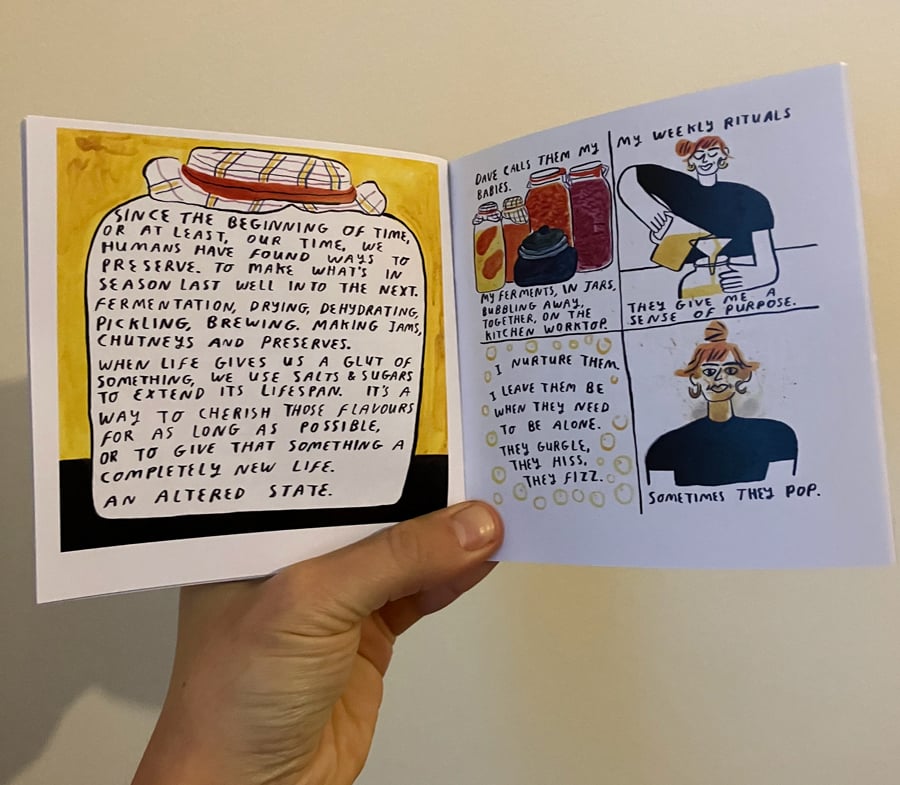 SINCE THE BEGINNING OF TIME,
OR AT LEAST, OUR TIME, WE
HUMANS HAVE FOUND WAYS TO
PRESERVE. TO MAKE WHAT'S IN
SEASON LAST WELL INTO THE NEXT.
FERMENTATION, DRYING, DEHYDRATING,
PICKLING, BREWING. MAKING JAMS,
CHUTNEYS AND PRESERVES.
WHEN LIFE GIVES US A GLUT OF
SOMETHING, WE USE SALTS & SUGARS
TO EXTEND ITS LIFESPAN. IT'S A
WAY TO CHERISH THOSE FLAVOURS
FOR AS LONG AS POSSIBLE,
OR TO GIVE THAT SOMETHING A
COMPLETELY NEW LIFE.
AN ALTERED STATE.
DAVE CALLS THEM MY
BABIES.
MY FERMENTS, IN JARS,
BUBBLING AWAY,
TOGETHER, ON THE
KITCHEN WORKTOP.
MY WEEKLY RITUALS
THEY GIVE ME A
SENSE OF PURPOSE.
I NURTURE THEM
I LEAVE THEM BE
WHEN THEY NEED
TO BE ALONE.
THEY GURGLE,
THEY HISS,
THEY FIZZ.
SOMETIMES THEY POP.